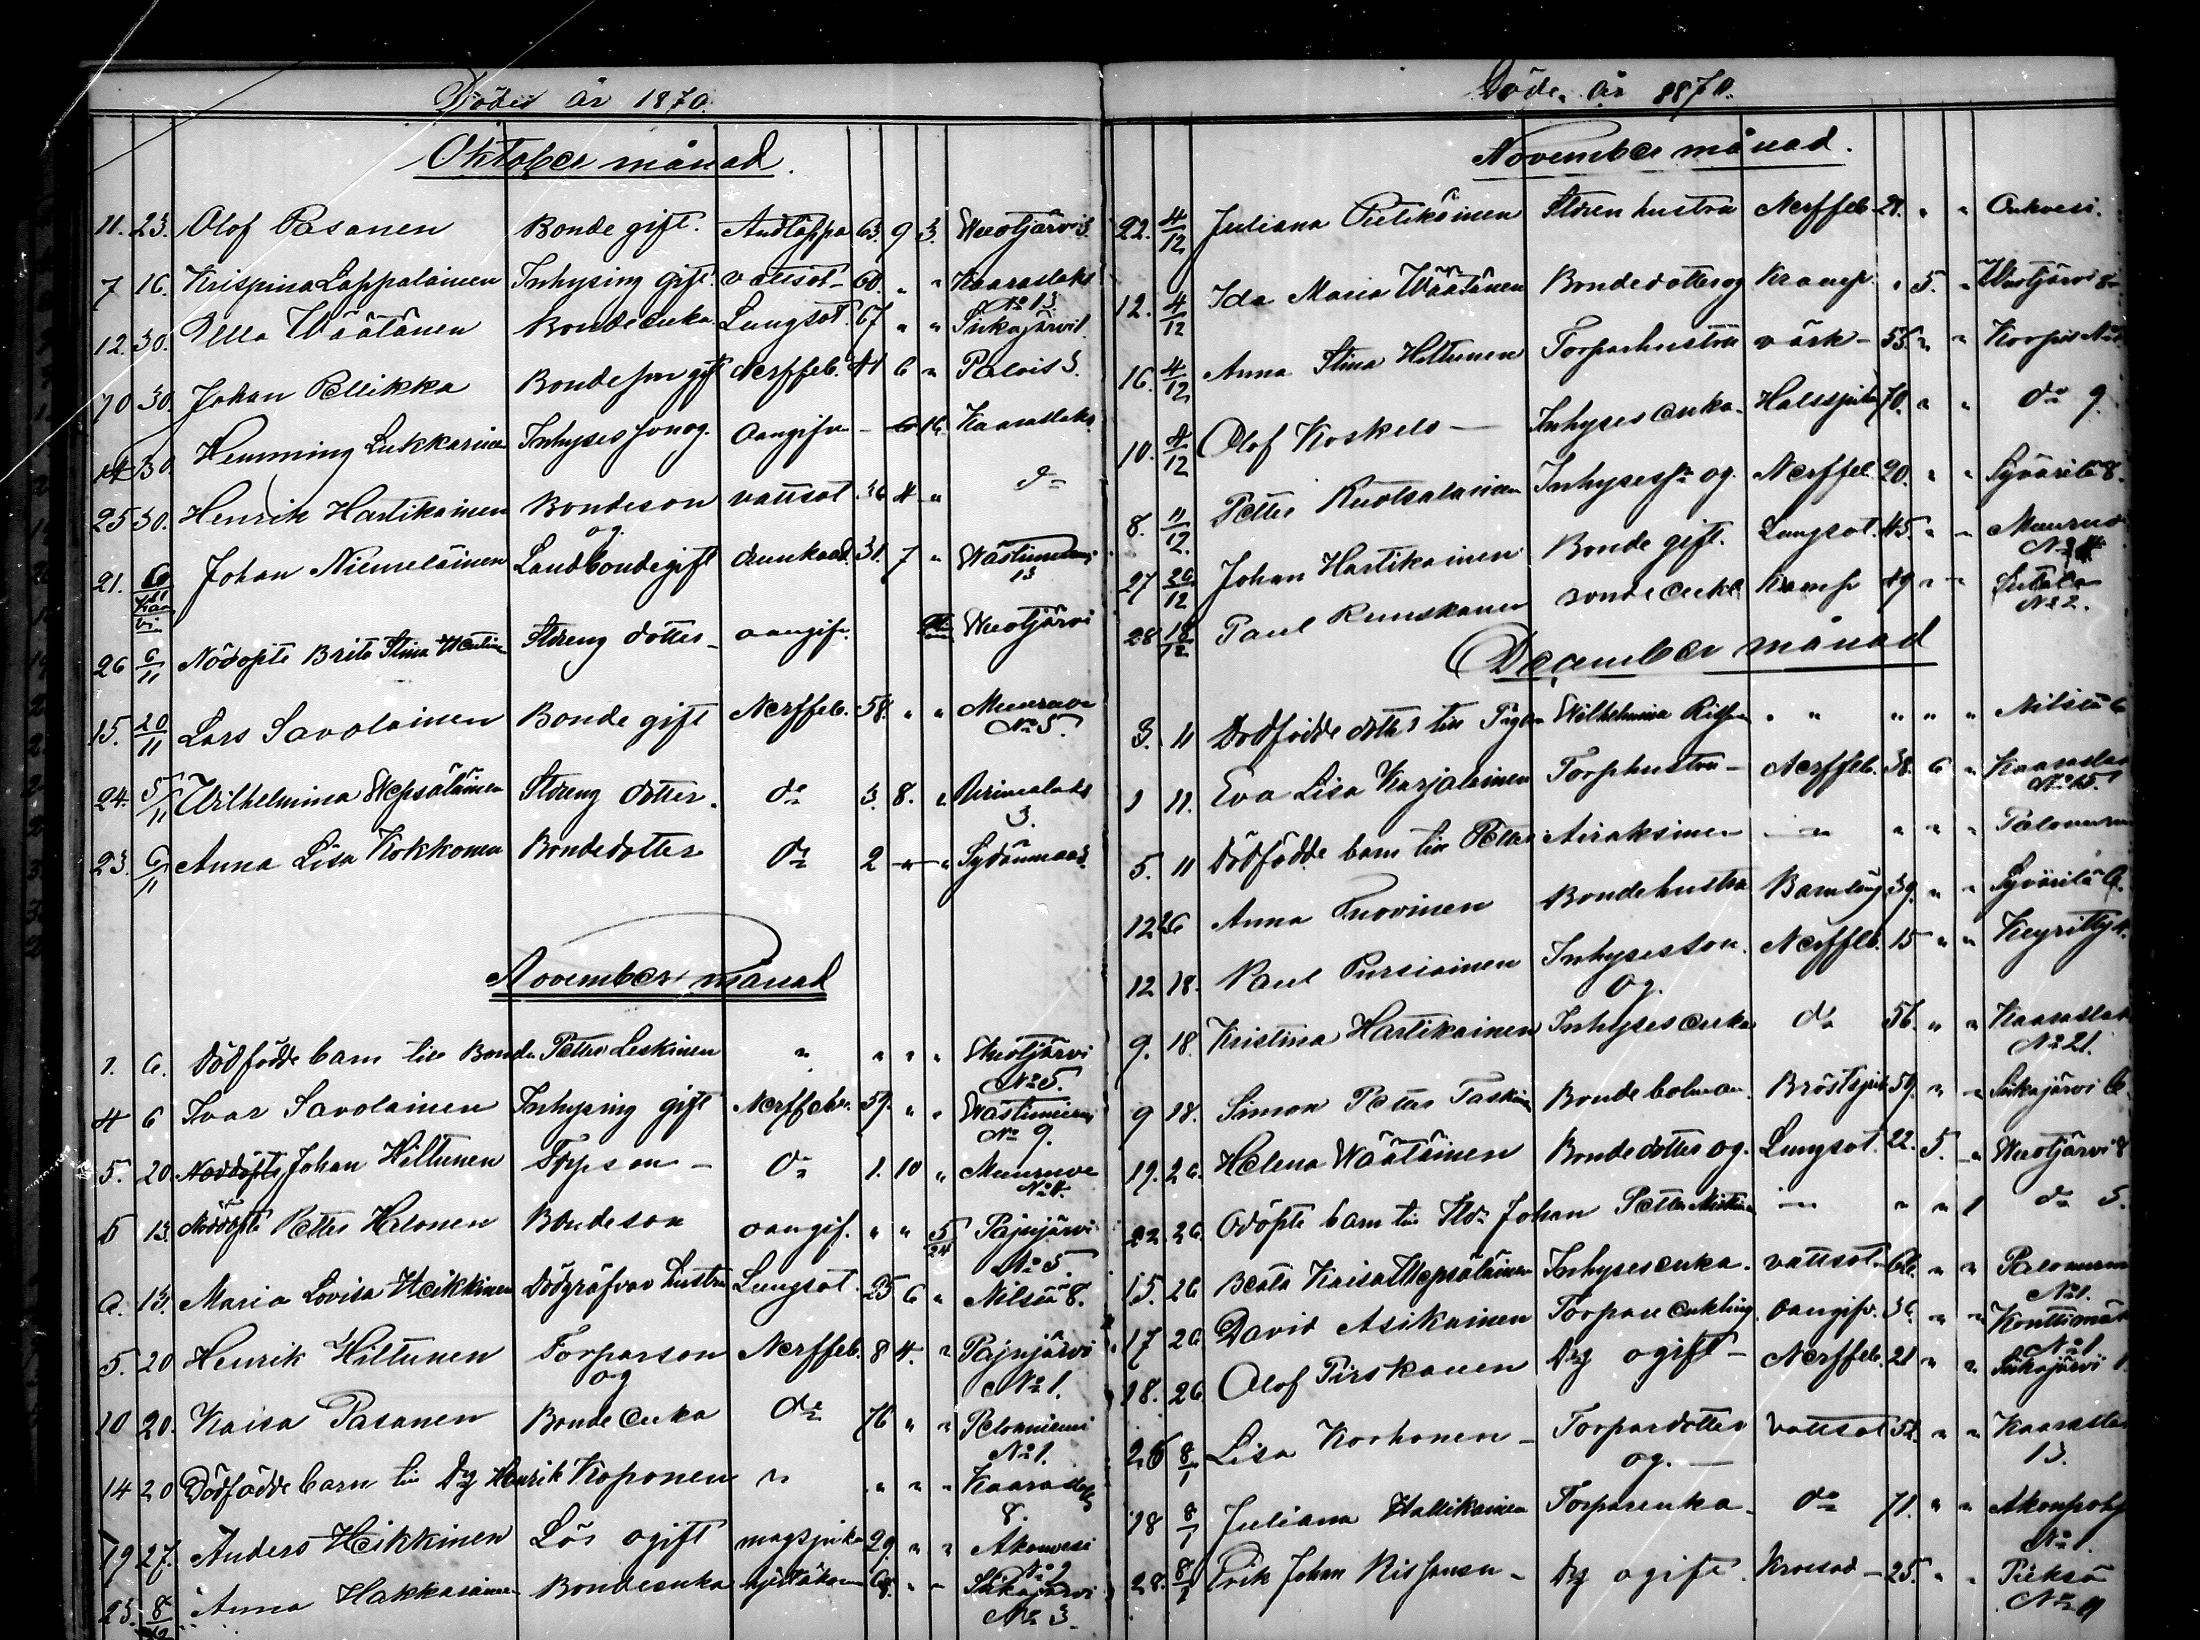 Döde år 1870.
Oktober månad.
11. 23. Olof Pasanen Bonde gift. Andtäppa 63. 9 3. Wuotjärvi 3.
7 16. Krispina Lappalainen Inhysing gift. vattsot 60. " " Kaaraslaks
No 13
12. 30. Ulla Wäätänen Bondeenka Lungsot. 67 " " Siikajärvi 1.
20 30. Johan Pellikka Bondeson gift Nerffeb. 41 6 " Palois 3.
14 30 Hemming Lukkarinen Inhyses son og. oangifv. - 16. Kaaraslaks
25 30. Henrik Hartikainen Bondeson vattsot 36 4 " do
og.
21. 6/11 Johan Niemeläinen Landbonde gift drunknad. 31. 7 " Wästinniemi
13
26 6/11 Nödöpte Brita Stina Dreng dotter - oangifv. Wuotjärvi
15. 20/11 Lars Savolainen Bonde gift Nerffeb. 58. " " Muuruve
No 5.
24. 5/11 Wilhelmina Wepsäläinen Dreng dotter. do 3. 8. "
3.
23. 6/11 Anna Lisa Kokkonen Bondedotter do 2 " " Sydänmaa
November månad
1. 6. Dödfödde barn till Bonde Petter Leskinen " " " " Wuotjärvi
No 5.
4 6 Ivar Savolainen Inhysing gift Nerffeber. 59. " " Wästinniemi
No 9.
5. 20. Nödöpte Johan Hiltunen Tppson - do 1. 10 " Muuruve
No 4.
5 13. Nödöpte Petter Halonen Bondeson oangif. " " 5/24 Pajujärvi
No 5.
6. 13. Maria Lovisa Heikkinen Dödgräfvar hustru Lungsot. 25 6 " Nilsiä 8.
5. 20 Henrik Hiltunen Torparson Nerffeb. 8 4. " Pajujärvi
og No 1.
10 20. Kaisa Pasanen Bonde enka do 76 " " Palonniemi
No 1.
14 20 Dödfödde barn till Drg Henrik Koponen " " " " Kaaraslaks
8.
19 27. Anders Heikkinen Lös ogift magsjuka 29. " " Akonvesi
No 2
23. 8/12 Anna Hakkarainen Bondeenka 68. " " Siikajärvi
No 3.
Döde. år 1870.
November månad.
22. 4/12 Juliana Pietikäinen Dreng hustru Nerffeb. 21. " "
12. 4/12 Ida Maria Wäätänen Bondedotter og Kramp. " 5. " Wuotjärvi 8
16. 4/12 Anna Stina Hiltunen Torparhustru värk - 55. " "
10. 4/12 Olof Koskelo - Inhyses enka. Halssjuka 70. " " do 9.
8. 11/12. Petter Ruotsalainen Inhyses sn og. Nerffeb. 20. " " Syvärilä 8.
27 26/12 Johan Hartikainen Bonde gift. Lungsot. 45. " " Muuruve
No 14
28 18/12 Paul Ruuskanen Bonde enkl Kramp 49 " "
No 2.
December månad
3. 11 Dödfödde dotter till Pigan Wilhelmina " " " " " Nilsiä 6
1 11. Eva Lisa Karjalainen Torphustru - Nerffeb. 38. 6 " Kaaraslaks
No 15.
5. 11 Dödfödde barn till Petter Airaksinen - " " " " Palonurmi
12 26 Anna Tuovinen Bondehustru Barnsäng 39. " " Syvärilä 6.
12 18. Paul Pursiainen Inhyseston. Nerffeb. 15 " " Keyritty 4.
Og.
9. 18. Kristina Hartikainen Inhyses enka do 56. " " Kaaraslaks
No 21.
9 18. Simon Petter Taskinen Bonde bolman. Bröstsjuk 59. " " Siikajärvi 6.
19. 26. Helena Wäätäinen Bondedotter og. Lungsot. 22. 5. " Wuotjärvi 8
22. 26. Odöpte barn till Drg Johan Petter - " " 1 do 5.
15. 26 Beata Kaisa Wepsäläinen Inhysesenka. vattsot 66. " " Palonurmi
No 1.
17 26. David Asikainen Torpare enkling. oangifv. 36. " " Konttimäki
No 1
18. 26 Olof Pirskanen Drg ogift - Nerffeb. 21 " " Siikajärvi 1.
26 8/1 Lisa Korhonen - Torpardotter vattsot 52. " " Kaaraslaks
og. - 13.
18 8/1 Juliana Hallikainen Torparenka - do 71. " " Akonpohja
No 1.
28. 8/1 Erik Johan Nissinen - Drg ogift. - 25. " "
No 11